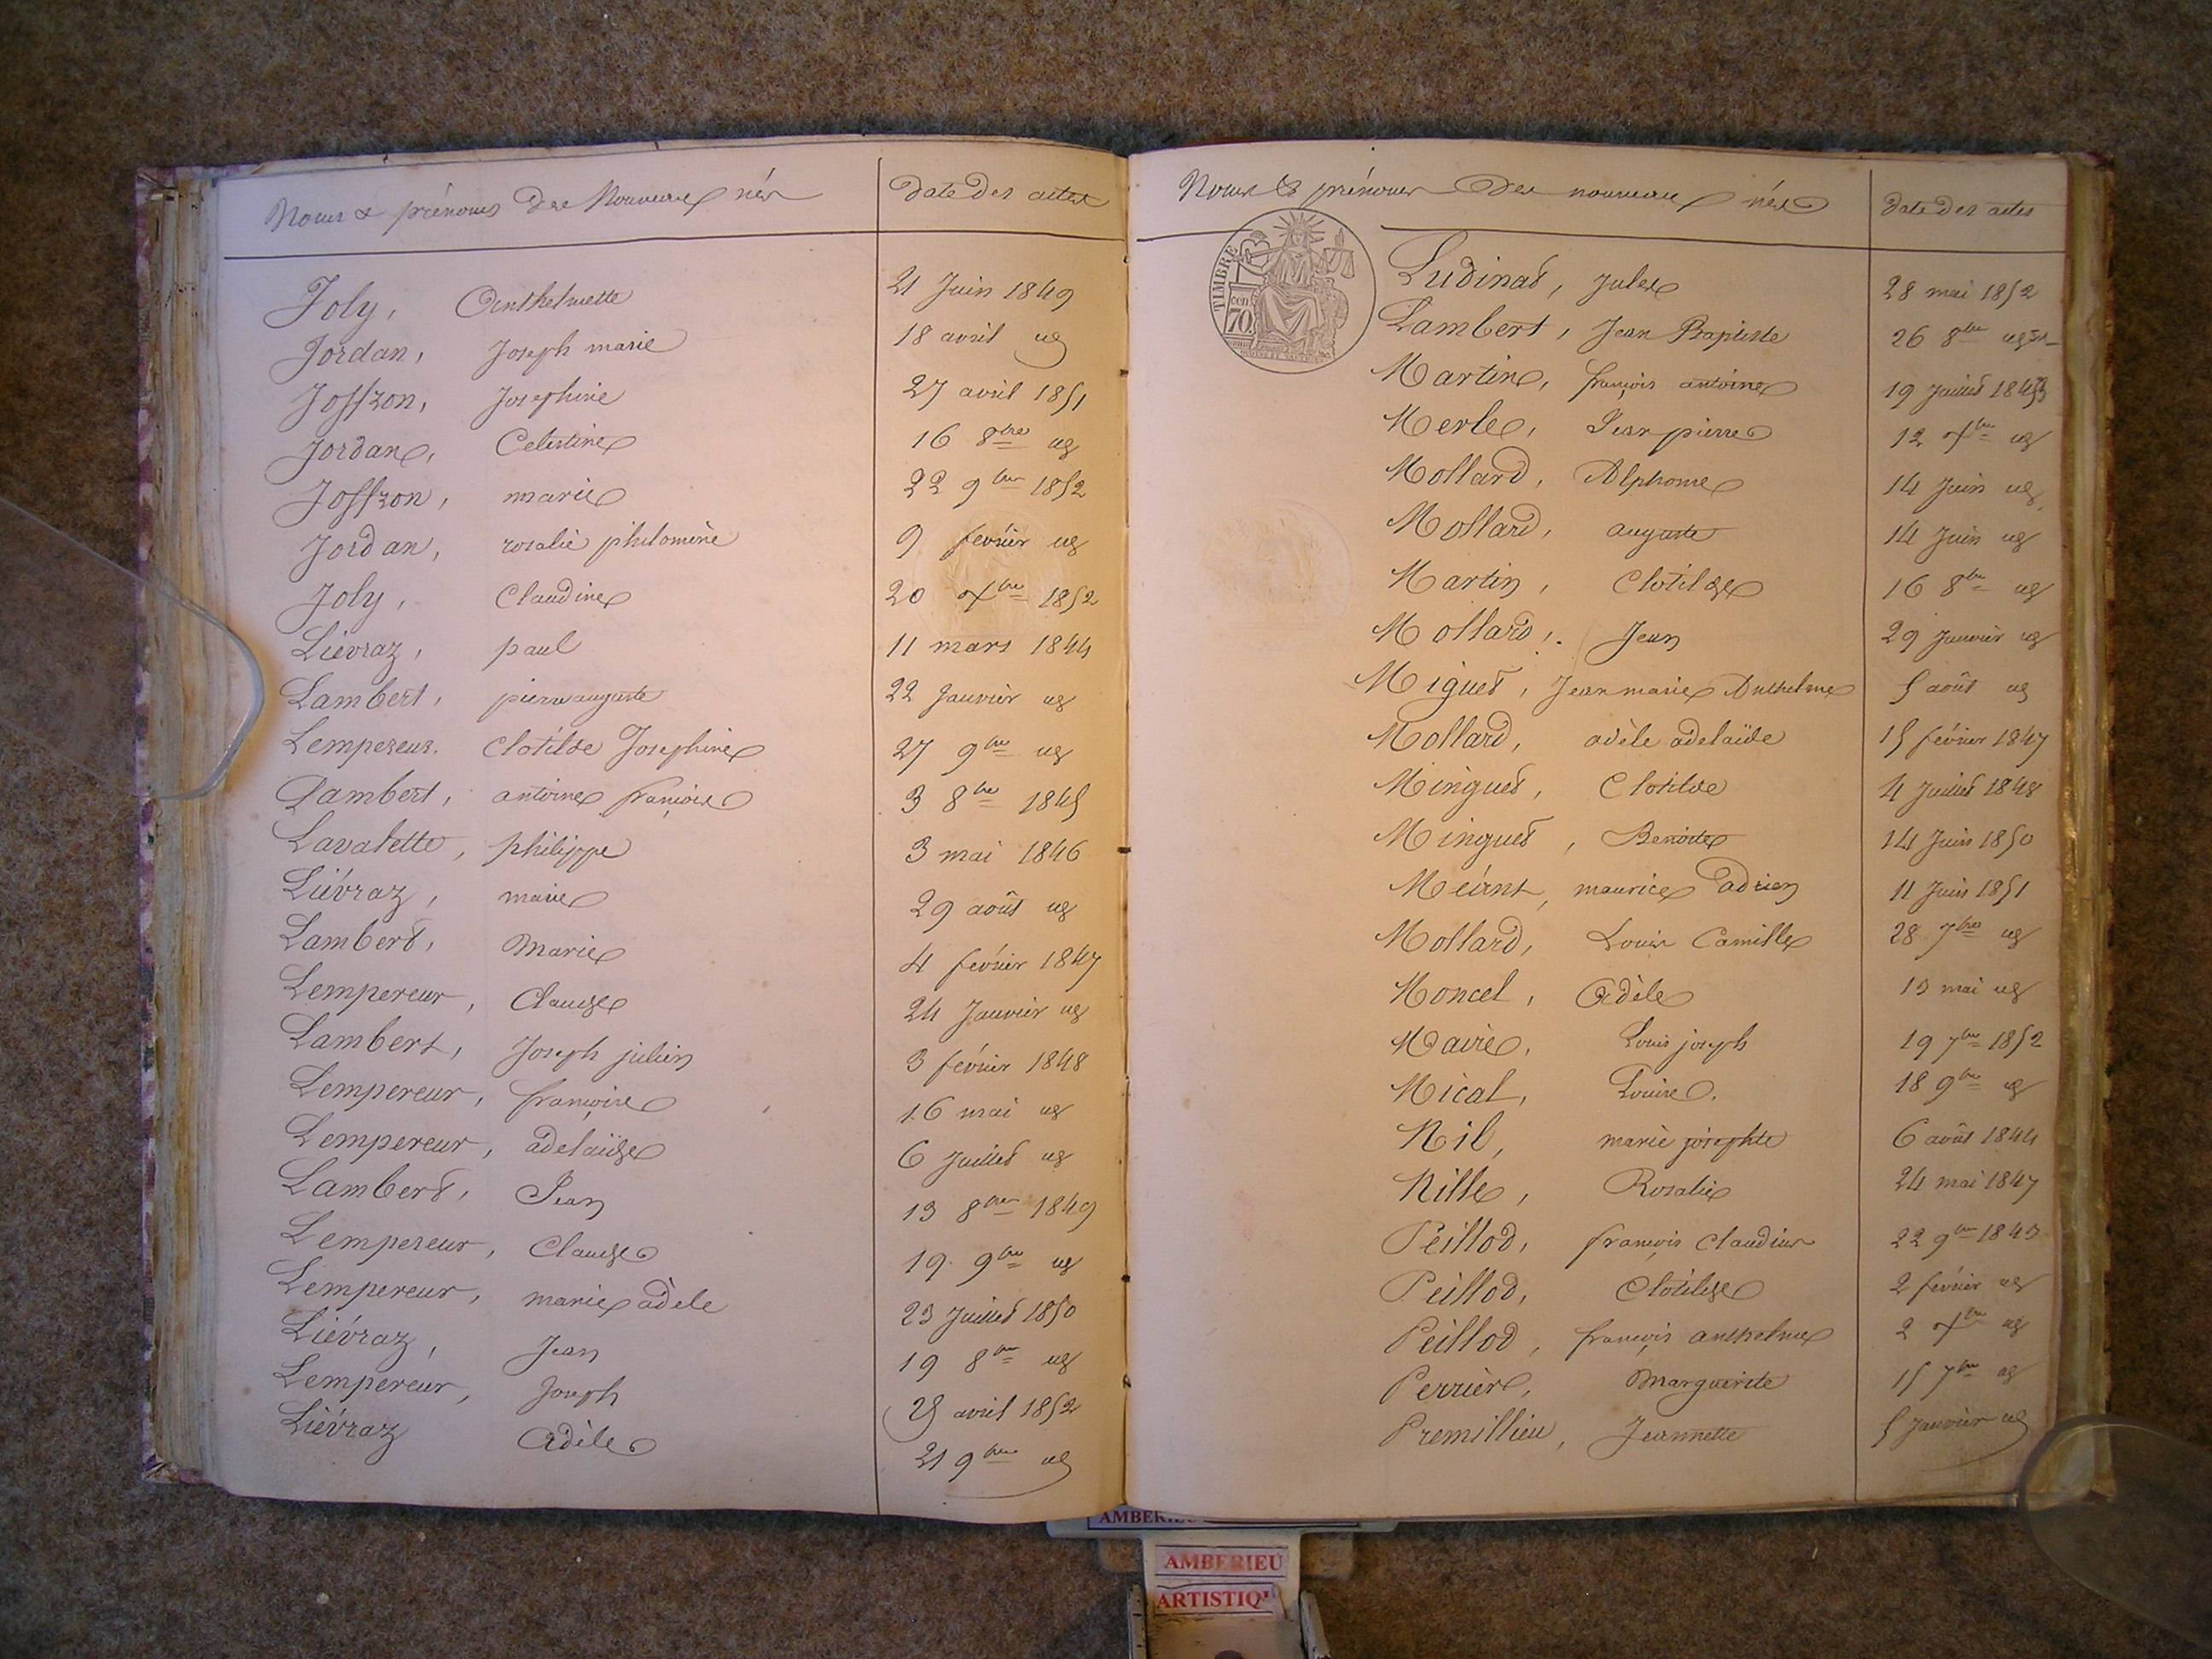 Noms & prénoms des Nouveaux nés | Date des actes
Joly, Anthelmette 21 Juin 1849
Jordan, Joseph marie 18 avril ug
Joffzon, Josephine 27 avril 1851
Jordan, Celestine 16 8bre ug
Joffzon, marie 22 9bre 1852
Jordan, rosalie philomène 9 février ug
Joly, Claudine 20 Xbre 1852
Liévraz, paul 11 mars 1844
Lambert, pierre auguste 22 Janvier ug
Lempereur. Clotilde Josephine 27 9bre ug
Lambert, antoine françois 3 8bre 1845
Lavalette, philippe 3 mai 1846
Liévraz, marie 29 août ug
Lambert, Marie 4 février 1847
Lempereur, Claude 24 Janvier ug
Lambert, Joseph julien 3 février 1848
Lempereur, françoise 16 mai ug
Lempereur, adelaïde 6 Juillet ug
Lambert, Jean 13 8bre 1849
Lempereur, Claude 19 9bre ug
Lempereur, marie adèle 23 Juillet 1850
Liévraz, Jean 19 8bre ug
Lempereur, Joseph 25 avril 1852
Liévraz Adèle 21 9bre ug
Noms & prénoms des nouveaux nés | Date des actes
TIMBRE
70
Ludinat, Jules 28 mai 1852
Lambert, Jean Baptiste 26 8bre ug
Martin, françois antoine 19 Juillet
Merle, Jean pierre 12 Xbre ug
Mollard, Alphonse 14 Juin ug
Mollard, auguste 14 Juin ug
Martin, Clotilde 16 8bre ug
Mollard, Jean 29 Janvier ug
Miguet, Jean marie Anthelme 5 août ug
Mollard, adèle adelaïde 15 février 1847
Minguet, Clotilde 4 Juillet 1848
Minguet, Benoite 14 Juin 1850
Méant, maurice adrien 11 Juin 1851
Mollard, Louis Camille 28 7bre ug
Moncel, Adèle 13 mai ug
Maire, Louis joseph 19 7bre 1852
Mical, Louise. 18 9bre ug
Nil, marie josephte 6 août 1844
Nille, Rosalie 24 mai 1847
Peillod, françois Claudius 22 9bre 1843
Peillod, Clotilde 2 février ug
Peillod, françois anthelme 2 Xbre ug
Perrière, Marguerite 15 7bre ug
Premillieu, Jeannette 5 Janvier ug
AMBERIEU
AMBERIEU
ARTISTIQU